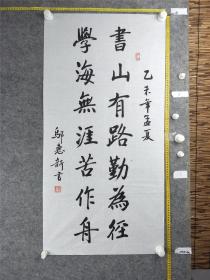 乙未年孟夏
書山有路勤為徑
學海無涯苦作舟
鄔惠新書